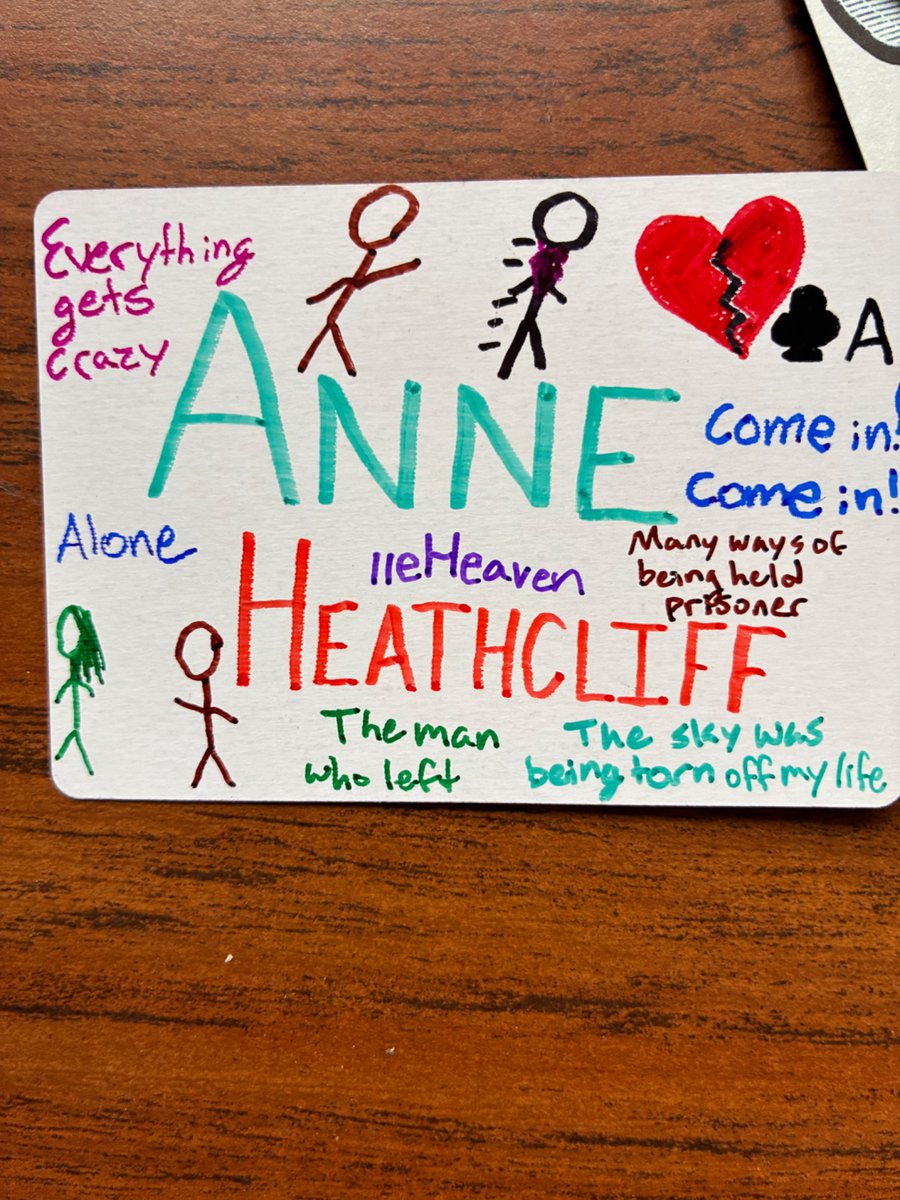 Everything
gets
crazy
A
ANNE
Come in!
Come in!
Alone
lleHeaven
Many ways of
being held
prisoner
HEATHCLIFF
The man
who left
The sky was
being torn off my life